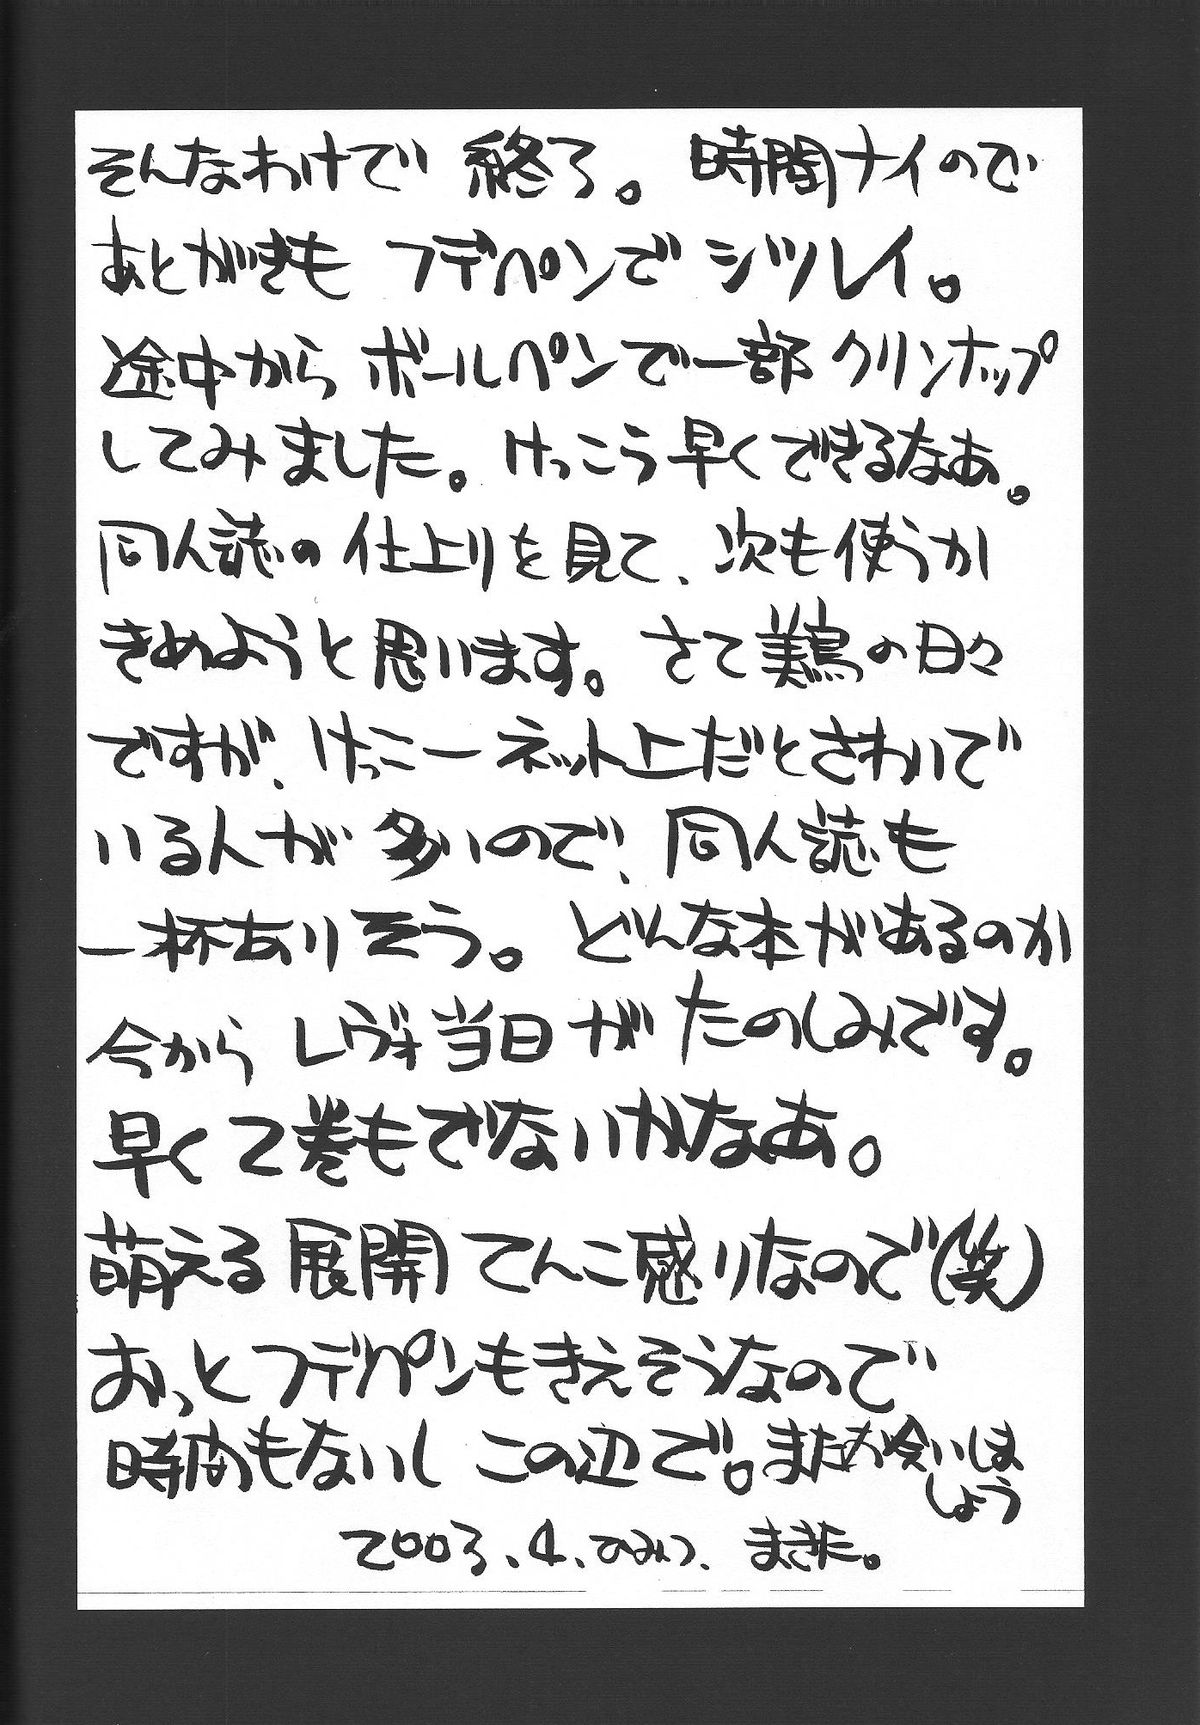 そんなわけで 終了。 時間ナイので
あとがきも フデペンで シツレイ。
途中から ボールペンで一部 クリンナップ
してみました。けっこう早くできるなあ。
同人誌の 仕上りを見て、次も使うか
きめようと思います。さて 美鳥の日々
ですが、けっこーネット上だとさわいで
いる人が 多いので、同人誌も
一杯ありそう。 どんな本があるのか
今から レヴォ当日が たのしみです。
早く2巻もでないかなあ。
萌える展開 てんこ盛りなので(笑)
おっとフデペンもきえそうなので
時間もないし この辺で。またお会いしま
しょう
2003.4.ひみつ. まきた。